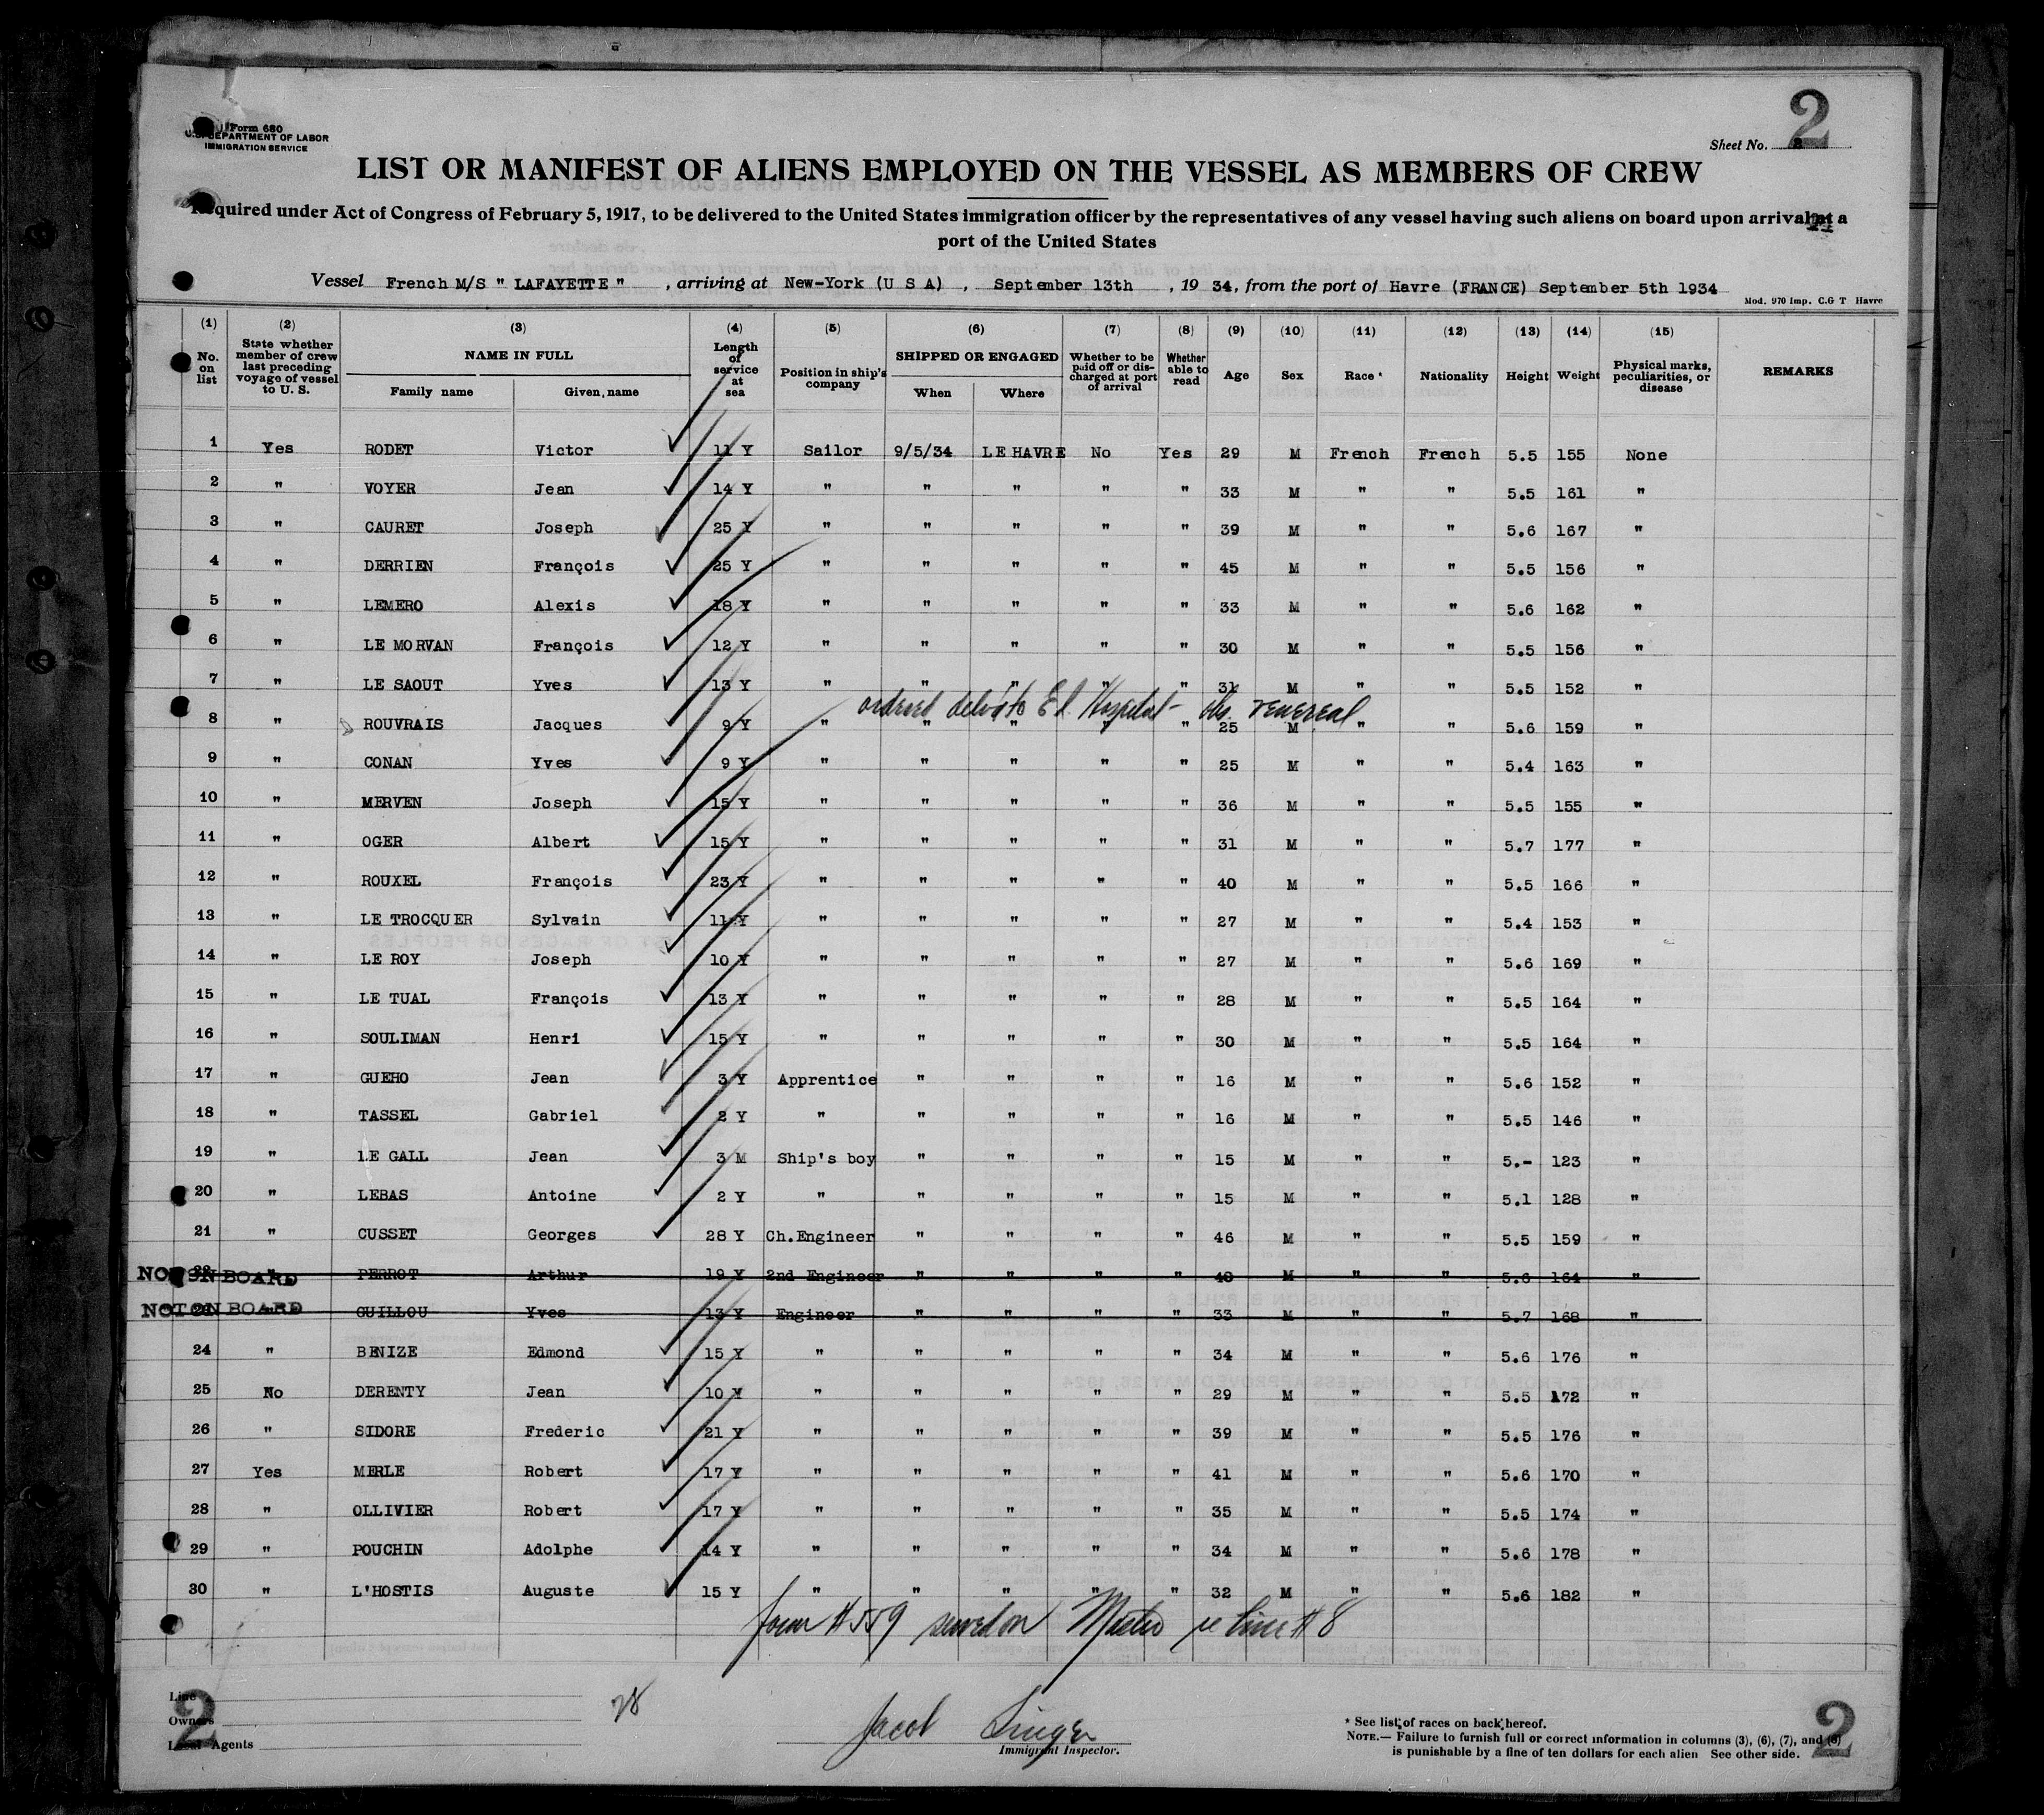 Form 680
U.S. DEPARTMENT OF LABOR
IMMIGRATION SERVICE
2
Sheet No.
LIST OR MANIFEST OF ALIENS EMPLOYED ON THE VESSEL AS MEMBERS OF CREW
Required under Act of Congress of February 5, 1917, to be delivered to the United States immigration officer by the representatives of any vessel having such aliens on board upon arrival at a
port of the United States
Vessel French M/S " LAFAYETTE " , arriving at New-York (U S A) , September 13th , 19 34, from the port of Havre (FRANCE) September 5th 1934
Mod. 970 Imp. C.G T Havre
(1) (2) (3) (4) (5) (6) (7) (8) (9) (10) (11) (12) (13) (14) (15)
No. on list State whether member of crew last preceding voyage of vessel to U. S. NAME IN FULL Length of service at sea Position in ship's company SHIPPED OR ENGAGED Whether to be paid off or discharged at port of arrival Whether able to read Age Sex Race * Nationality Height Weight Physical marks, peculiarities, or disease REMARKS
Family name Given name When Where
1 Yes RODET Victor 11 Y Sailor 9/5/34 LE HAVRE No Yes 29 M French French 5.5 155 None
2 " VOYER Jean 14 Y " " " " " 33 M " " 5.5 161 "
3 " CAURET Joseph 25 Y " " " " " 39 M " " 5.6 167 "
4 " DERRIEN François 25 Y " " " " " 45 M " " 5.5 156 "
5 " LEMERO Alexis 18 Y " " " " " 33 M " " 5.6 162 "
6 " LE MORVAN François 12 Y " " " " " 30 M " " 5.5 156 "
7 " LE SAOUT Yves 13 Y " " " " " 31 M " " 5.5 152 "
ordered deliv'd to E.I. Hospital - obs. venereal
8 " ROUVRAIS Jacques 9 Y " " " " " 25 M " " 5.6 159 "
9 " CONAN Yves 9 Y " " " " " 25 M " " 5.4 163 "
10 " MERVEN Joseph 15 Y " " " " " 36 M " " 5.5 155 "
11 " OGER Albert 15 Y " " " " " 31 M " " 5.7 177 "
12 " ROUXEL François 23 Y " " " " " 40 M " " 5.5 166 "
13 " LE TROCQUER Sylvain 11 Y " " " " " 27 M " " 5.4 153 "
14 " LE ROY Joseph 10 Y " " " " " 27 M " " 5.6 169 "
15 " LE TUAL François 13 Y " " " " " 28 M " " 5.5 164 "
16 " SOULIMAN Henri 15 Y " " " " " 30 M " " 5.5 164 "
17 " GUEHO Jean 3 Y Apprentice " " " " 16 M " " 5.6 152 "
18 " TASSEL Gabriel 2 Y " " " " " 16 M " " 5.5 146 "
19 " LE GALL Jean 3 M Ship's boy " " " " 15 M " " 5.- 123 "
20 " LEBAS Antoine 2 Y " " " " " 15 M " " 5.1 128 "
21 " CUSSET Georges 28 Y Ch.Engineer " " " " 46 M " " 5.5 159 "
NOT ON BOARD 22 " PERROT Arthur 19 Y 2nd Engineer " " " " 40 M " " 5.6 164 "
NOT ON BOARD " GUILLOU Yves 13 Y Engineer " " " " 33 M " " 5.7 168 "
24 " BENIZE Edmond 15 Y " " " " " 34 M " " 5.6 176 "
25 No DERENTY Jean 10 Y " " " " " 29 M " " 5.5 172 "
26 " SIDORE Frederic 21 Y " " " " " 39 M " " 5.5 176 "
27 Yes MERLE Robert 17 Y " " " " " 41 M " " 5.6 170 "
28 " OLLIVIER Robert 17 Y " " " " " 35 M " " 5.5 174 "
29 " POUCHIN Adolphe 14 Y " " " " " 34 M " " 5.6 178 "
30 " L'HOSTIS Auguste 15 Y " " " " " 32 M " " 5.6 182 "
form # 559 served on Master re line # 8
Line
Owners
Local Agents
2
28
Jacob Singer
Immigrant Inspector.
* See list of races on back hereof.
NOTE.— Failure to furnish full or correct information in columns (3), (6), (7), and (8)
is punishable by a fine of ten dollars for each alien See other side.
2